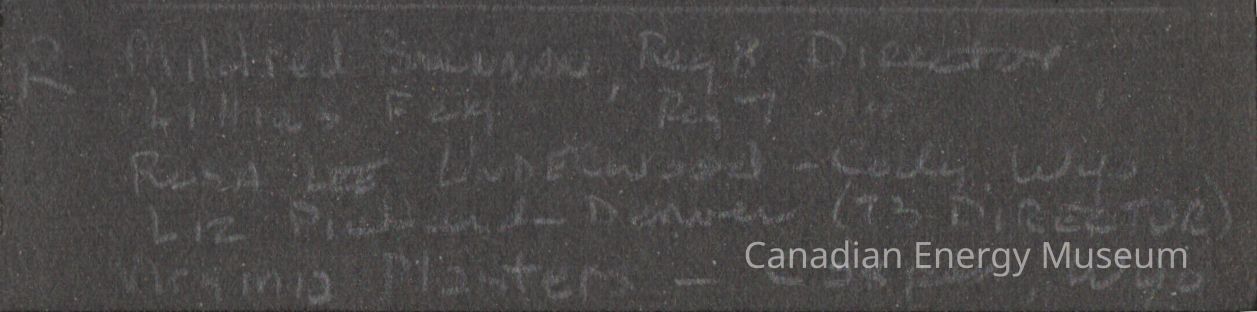 R Mildred Reg 8 Director
Lillian Fey Reg 7 "
Rosa LEE UNDERWOOD - Cody, Wyo
Liz - Denver (73 DIRECTOR)
Virginia Planters - Casper, Wyo
Canadian Energy Museum